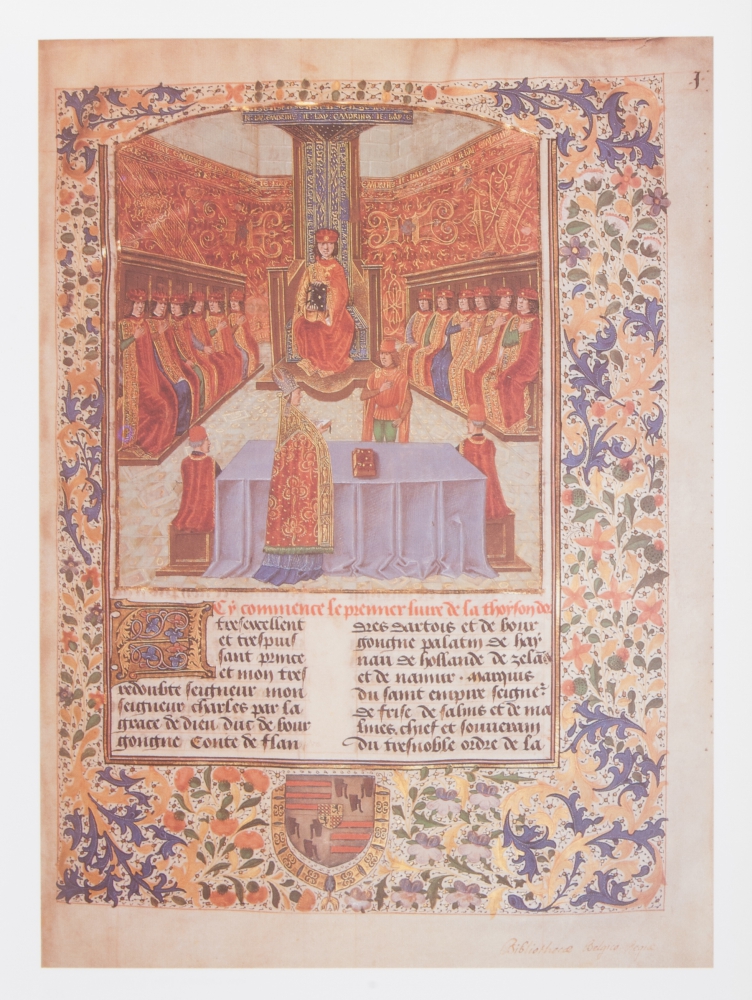 J
Cy commence le premier liure de la thoyson dor
tresexcellent
et trespuis
sant prince
et mon tres
redoubte seigneur mon
seigneur charles par la
grace de dieu duc de bour
gongne Conte de flan
dres dartois et de bour
gongne palatin de hay
nau de hollande de zelāde
et de namur . marquis
du saint empire seigneʳ
de frise de salins et de ma
lines, chief et souuerain
du tresnoble ordre de la